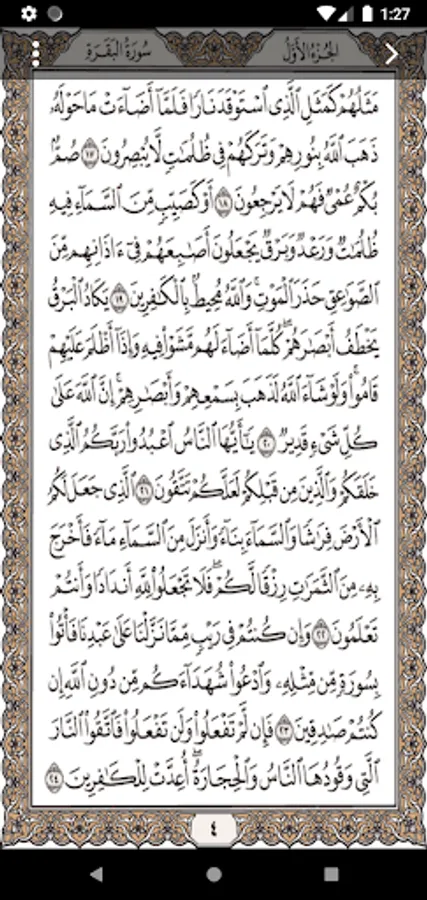 1:27
سُورَةُ البَقَرَةِ
الجُزءُ الأَوَّلُ
مَثَلُهُمْ كَمَثَلِ ٱلَّذِى ٱسْتَوْقَدَ نَارًا فَلَمَّآ أَضَآءَتْ مَا حَوْلَهُۥ
ذَهَبَ ٱللَّهُ بِنُورِهِمْ وَتَرَكَهُمْ فِى ظُلُمَٰتٍ لَّا يُبْصِرُونَ ١٧ صُمٌّۢ
بُكْمٌ عُمْىٌ فَهُمْ لَا يَرْجِعُونَ ١٨ أَوْ كَصَيِّبٍ مِّنَ ٱلسَّمَآءِ فِيهِ
ظُلُمَٰتٌ وَرَعْدٌ وَبَرْقٌ يَجْعَلُونَ أَصَٰبِعَهُمْ فِىٓ ءَاذَانِهِم مِّنَ
ٱلصَّوَٰعِقِ حَذَرَ ٱلْمَوْتِۚ وَٱللَّهُ مُحِيطٌۢ بِٱلْكَٰفِرِينَ ١٩ يَكَادُ ٱلْبَرْقُ
يَخْطَفُ أَبْصَٰرَهُمْۖ كُلَّمَآ أَضَآءَ لَهُم مَّشَوْا۟ فِيهِ وَإِذَآ أَظْلَمَ عَلَيْهِمْ
قَامُوا۟ۚ وَلَوْ شَآءَ ٱللَّهُ لَذَهَبَ بِسَمْعِهِمْ وَأَبْصَٰرِهِمْۚ إِنَّ ٱللَّهَ عَلَىٰ
كُلِّ شَىْءٍ قَدِيرٌ ٢٠ يَٰٓأَيُّهَا ٱلنَّاسُ ٱعْبُدُوا۟ رَبَّكُمُ ٱلَّذِى
خَلَقَكُمْ وَٱلَّذِينَ مِن قَبْلِكُمْ لَعَلَّكُمْ تَتَّقُونَ ٢١ ٱلَّذِى جَعَلَ لَكُمُ
ٱلْأَرْضَ فِرَٰشًا وَٱلسَّمَآءَ بِنَآءً وَأَنزَلَ مِنَ ٱلسَّمَآءِ مَآءً فَأَخْرَجَ
بِهِۦ مِنَ ٱلثَّمَرَٰتِ رِزْقًا لَّكُمْۖ فَلَا تَجْعَلُوا۟ لِلَّهِ أَندَادًا وَأَنتُمْ
تَعْلَمُونَ ٢٢ وَإِن كُنتُمْ فِى رَيْبٍ مِّمَّا نَزَّلْنَا عَلَىٰ عَبْدِنَا فَأْتُوا۟
بِسُورَةٍ مِّن مِّثْلِهِۦ وَٱدْعُوا۟ شُهَدَآءَكُم مِّن دُونِ ٱللَّهِ إِن
كُنتُمْ صَٰدِقِينَ ٢٣ فَإِن لَّمْ تَفْعَلُوا۟ وَلَن تَفْعَلُوا۟ فَٱتَّقُوا۟ ٱلنَّارَ
ٱلَّتِى وَقُودُهَا ٱلنَّاسُ وَٱلْحِجَارَةُۖ أُعِدَّتْ لِلْكَٰفِرِينَ ٢٤
٤